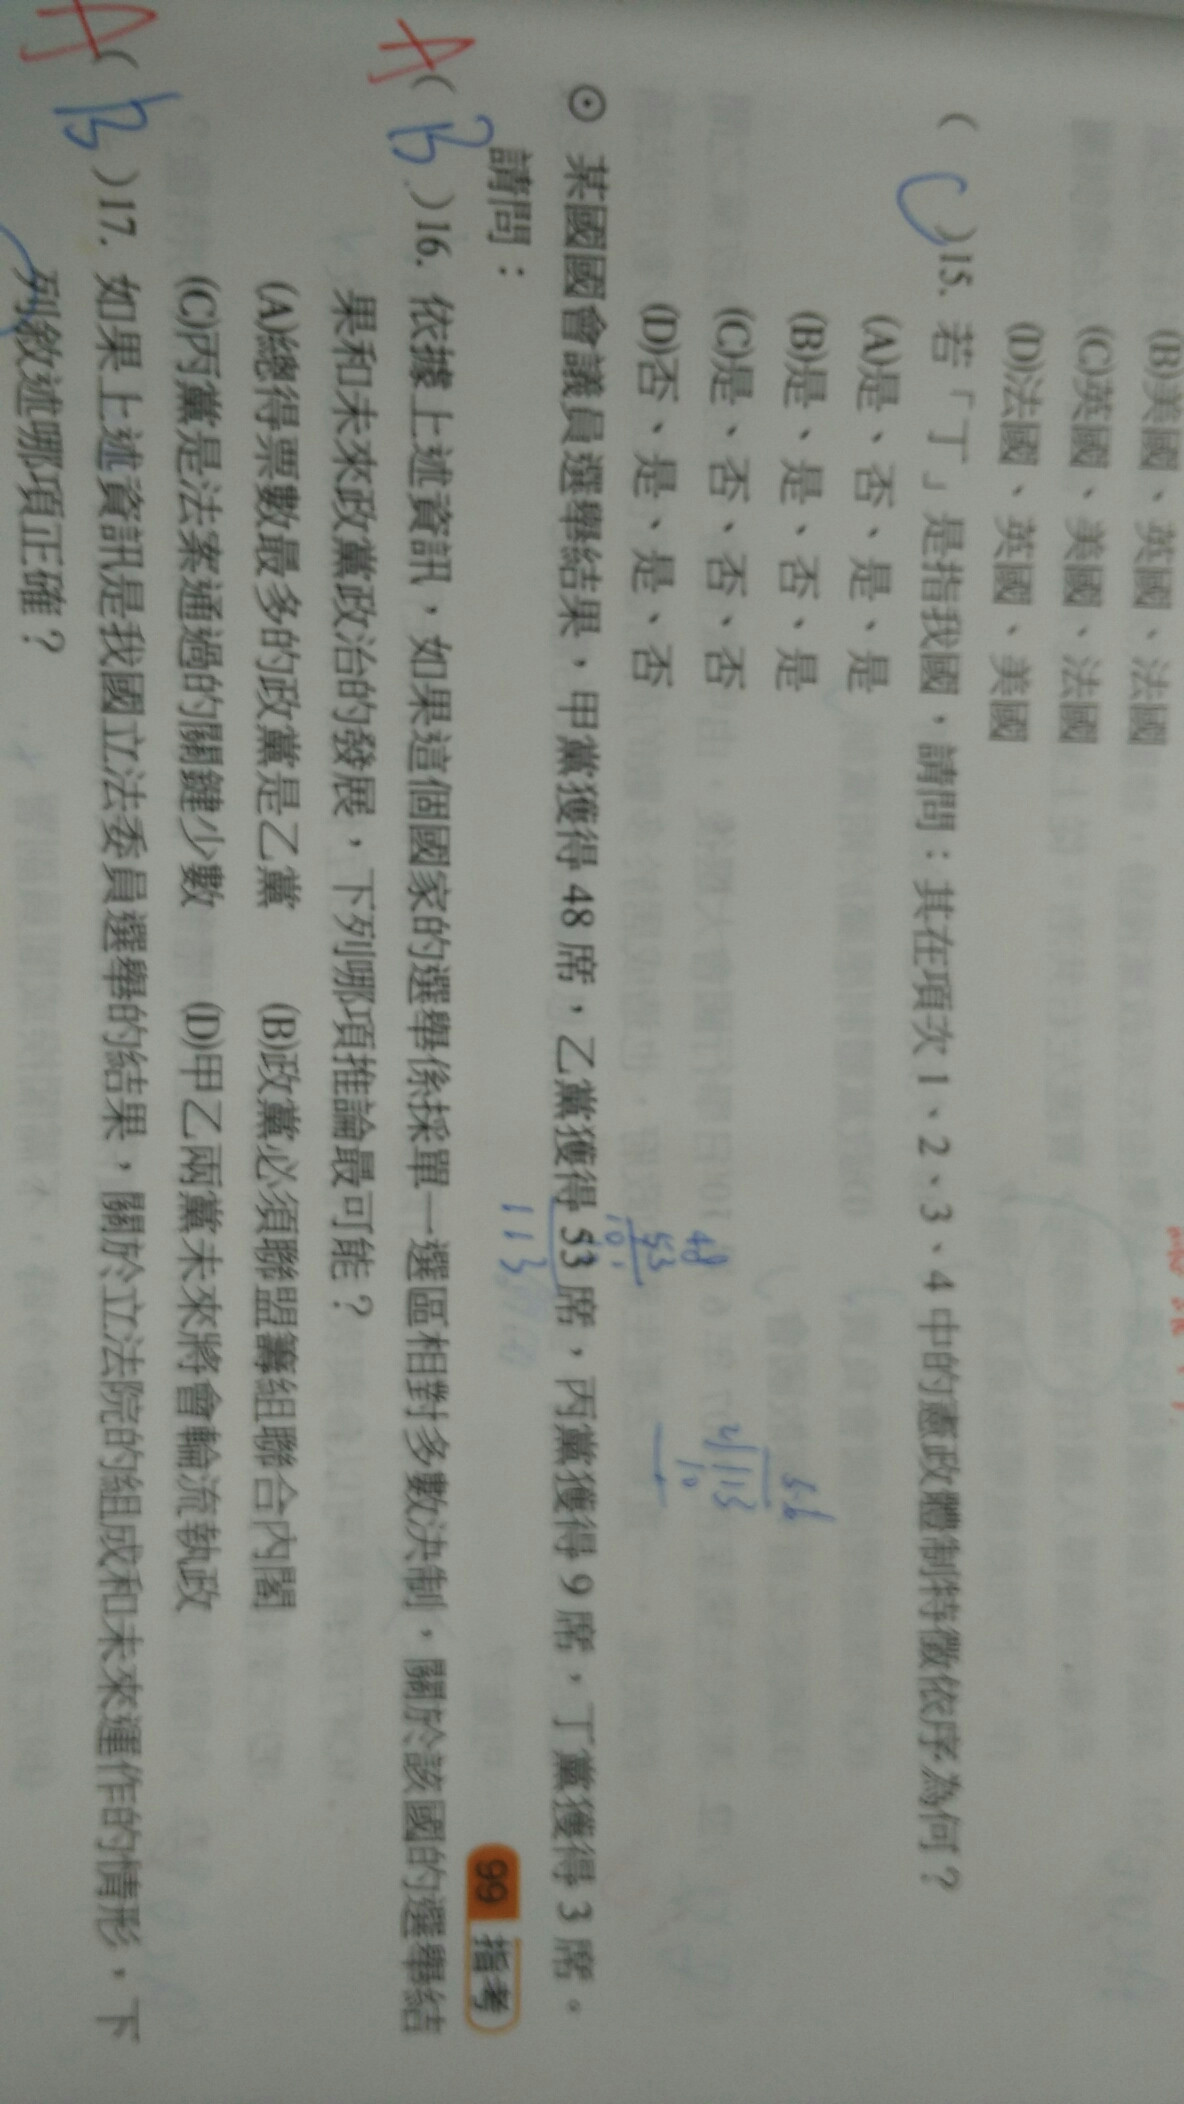 (B)美國、英國、法國
(C)英國、美國、法國
(D)法國、英國、美國
( C )15. 若「丁」是指我國,請問:其在項次 1、2、3、4 中的憲政體制特徵依序為何?
(A)是、否、是、是
(B)是、是、否、是
(C)是、否、否、否
(D)否、是、是、否
48
53
101
5.6
2/113
10
⊙ 某國國會議員選舉結果,甲黨獲得 48 席,乙黨獲得 53 席,丙黨獲得 9 席,丁黨獲得 3 席。
請問:
113
99 指考
A ( B )16. 依據上述資訊,如果這個國家的選舉係採單一選區相對多數決制,關於該國的選舉結
果和未來政黨政治的發展,下列哪項推論最可能?
(A)總得票數最多的政黨是乙黨 (B)政黨必須聯盟籌組聯合內閣
(C)丙黨是法案通過的關鍵少數 (D)甲乙兩黨未來將會輪流執政
A ( B )17. 如果上述資訊是我國立法委員選舉的結果,關於立法院的組成和未來運作的情形,下
列敘述哪項正確?